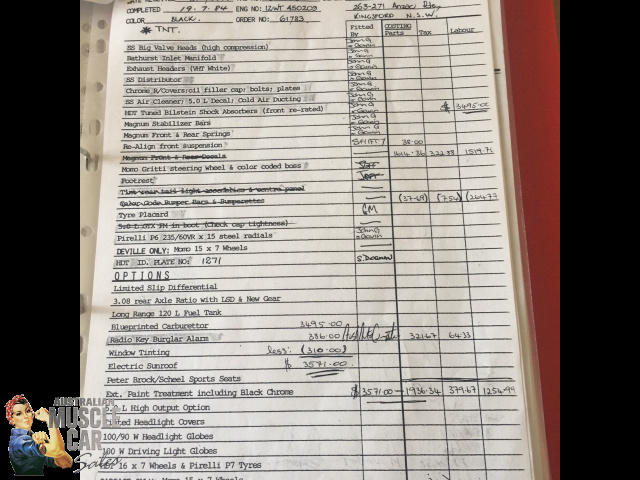 COMPLETED 19.7.84 ENG NO: 12/WT 450203 263-271 Anzac Pde,
COLOR BLACK. ORDER NO: 61783 KINGSFORD N.S.W.
* TNT. Fitted By COSTING Parts Tax Labour
SS Big Valve Heads (high compression) John G + Gavin
Bathurst Inlet Manifold John G + Gavin
Exhaust Headers (VHT White) John G + Gavin
SS Distributor John G + Gavin
Chrome R/Covers; oil filler cap; bolts; plates John G + Gavin
SS Air Cleaner; 5.0 L Decal; Cold Air Ducting John G + Gavin
HDT Tuned Bilstein Shock Absorbers (front re-rated) John G + Gavin $ 3495.00
Magnum Stabilizer Bars John G + Gavin
Magnum Front & Rear Springs John G + Gavin
Re-Align front suspension SHIFTY 38.00
Magnum Front & Rear Decals 1614.86 322.88 1519.71
Momo Gritti steering wheel & color coded boss
Footrest
Tint rear tail light assemblies & centre panel
Quaker Code Bumper Bars & Bumperettes (37.69) (7.54) (264.77)
Tyre Placard GM
5.0 L GTX FM in boot (Check cap tightness)
Pirelli P6 235/60VR x 15 steel radials John G + Gavin
DEVILLE ONLY: Momo 15 x 7 Wheels
HDT ID. PLATE NO: 1271 S. DORMAN
OPTIONS
Limited Slip Differential
3.08 rear Axle Ratio with LSD & New Gear
Long Range 120 L Fuel Tank
Blueprinted Carburettor 3495.00
Radio Key Burglar Alarm 386.00 321.67 64.33
Window Tinting less: (310.00)
Electric Sunroof $ 3571.00
Peter Brock/Scheel Sports Seats
Ext. Paint Treatment including Black Chrome $3571.00 1936.34 379.67 1254.99
L High Output Option
Headlight Covers
100/90 W Headlight Globes
100 W Driving Light Globes
16 x 7 Wheels & Pirelli P7 Tyres
Momo 15 x 7 Wheels
AUSTRALIAN
MUSCLE
CAR
Sales